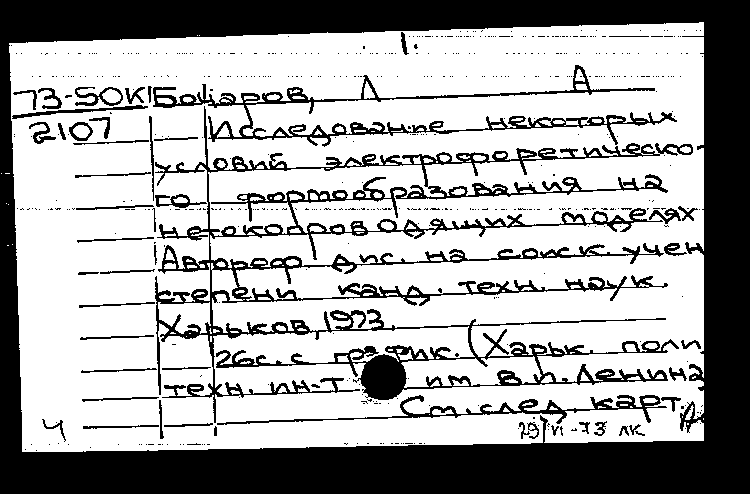 1.
73-50К Бочаров, Л А
2107 Исследование некоторых
условий электрофоретическо-
го формообразования на
нетокопроводящих моделях
Автореф дис. на соиск. учен
степени канд. техн. наук.
Харьков, 1973.
26с. с график. (Харьк. поли
техн. ин-т им В.И. Ленина
См. след. карт.
Ч 29/VI-73 ЛК